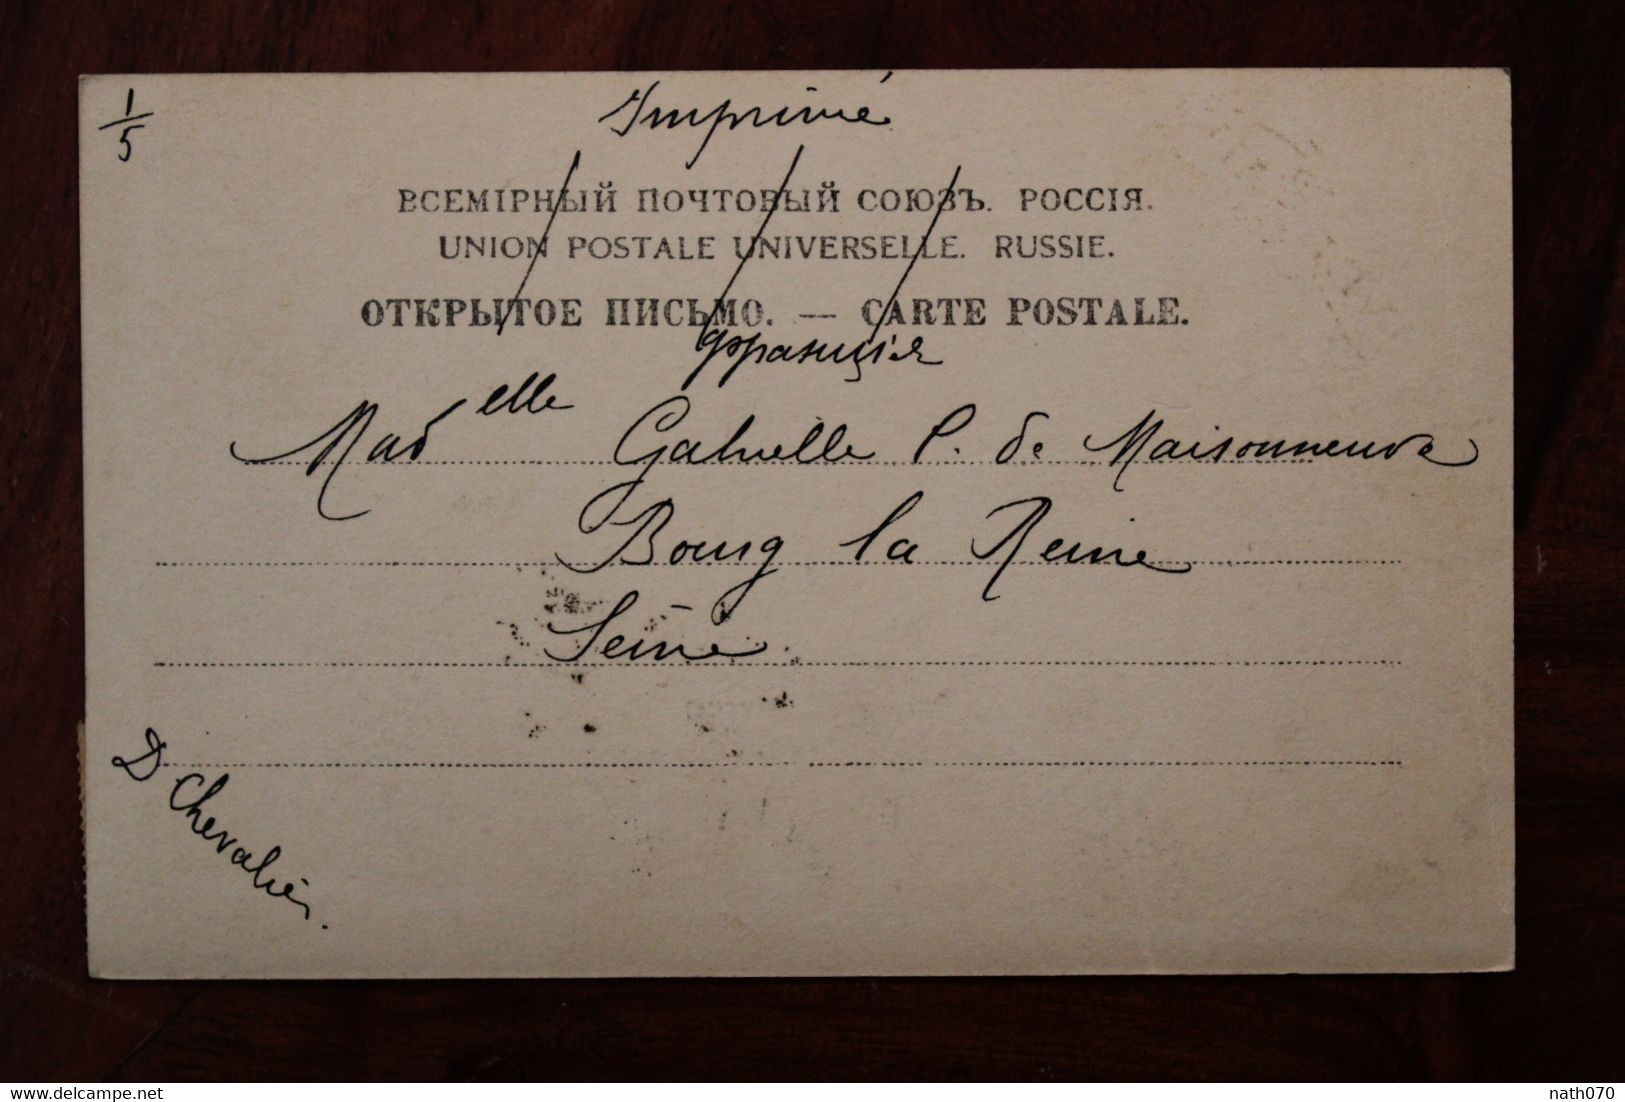 1/5
Imprimé
ВСЕМІРНЫЙ ПОЧТОВЫЙ СОЮЗЪ. РОССІЯ.
UNION POSTALE UNIVERSELLE. RUSSIE.
ОТКРЫТОЕ ПИСЬМО. — CARTE POSTALE.
Франція
Madelle Gabrielle P. de Maisonneuve
Bourg la Reine
Seine.
D Chevalier.
delcampe.net
nath070